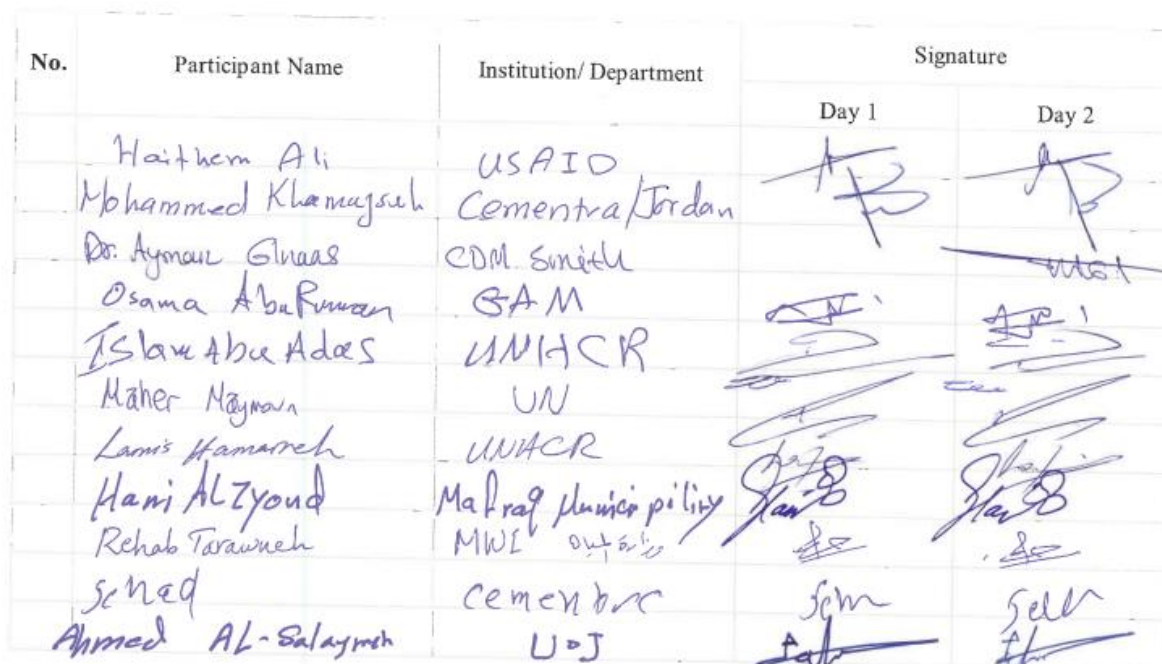 No. Participant Name Institution/ Department Signature
Day 1 Day 2
Haithem Ali USAID
Mohammed Khamayseh Cementra/Jordan
Dr. Ayman CDM Smith
Osama AbuRumman GAM
Islam Abu Adas UNHCR
Maher Maymoun UN
Lamis Hamarneh UNHCR
Hani ALZyoud Mafraq Municipility Hani Hani
Rehab Tarawneh MWI
cemenbrc
Ahmed AL-Salaymeh UoJ